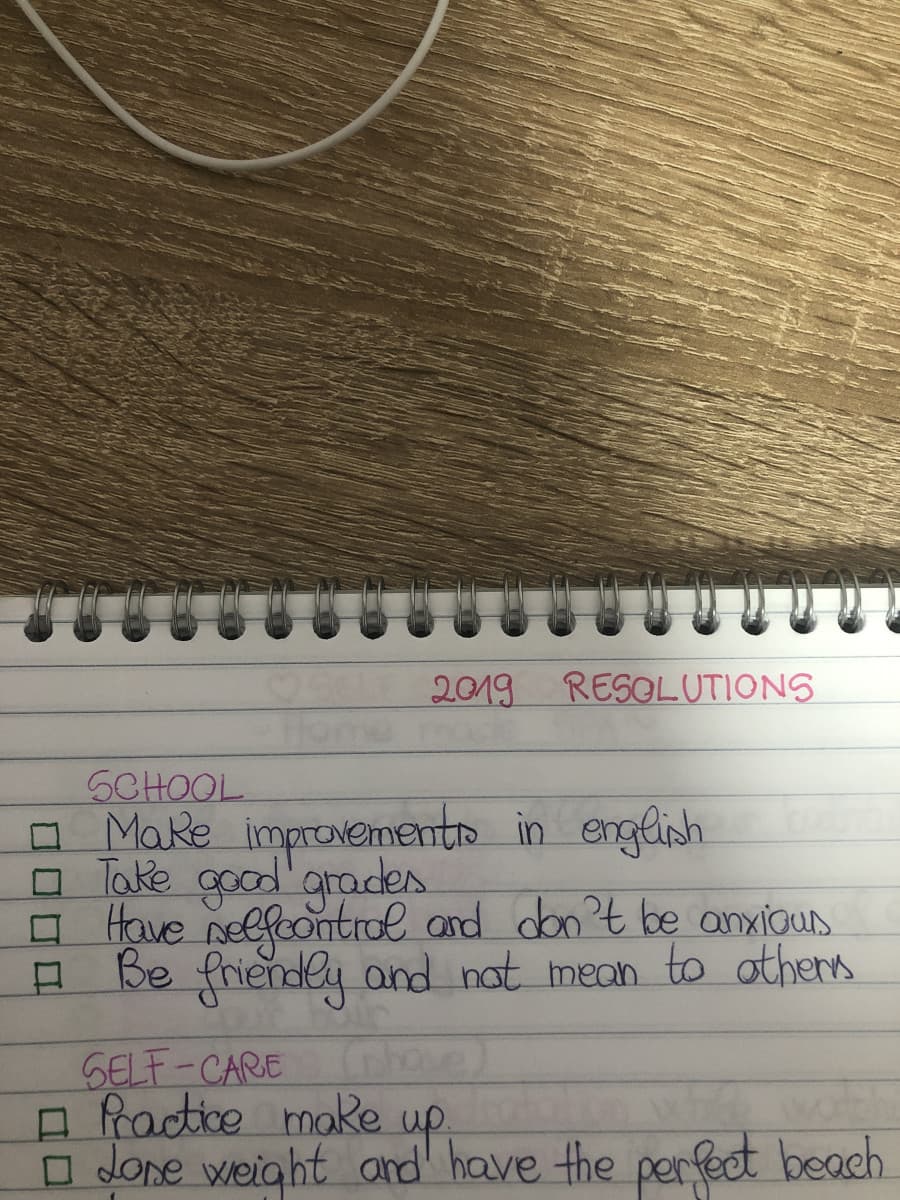 2019 RESOLUTIONS
SCHOOL
Make improvements in english
Take good grades
Have selfcontrol and don't be anxious
Be friendly and not mean to others
SELF-CARE
Practice make up.
Lose weight and have the perfect beach